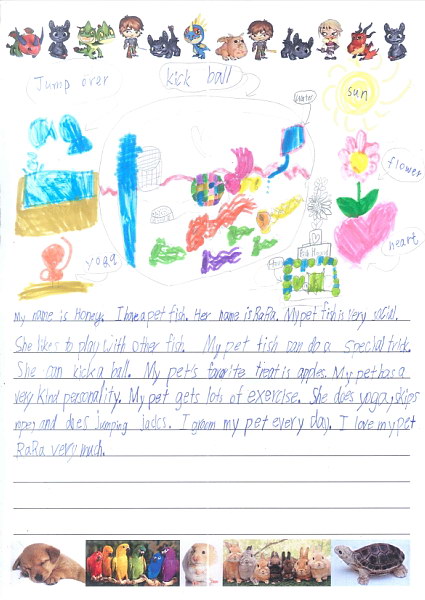 Jump over
kick ball
sun
flower
heart
yoga
My name is Honey. I have a pet fish. Her name is RaRa. My pet fish is very social.
She likes to play with other fish. My pet fish can do a special trick.
She can kick a ball. My pet's favorite treat is apples. My pet has a
very kind personality. My pet gets lots of exercise. She does yoga, skips
ropes and does jumping jacks. I groom my pet every day. I love my pet
RaRa very much.